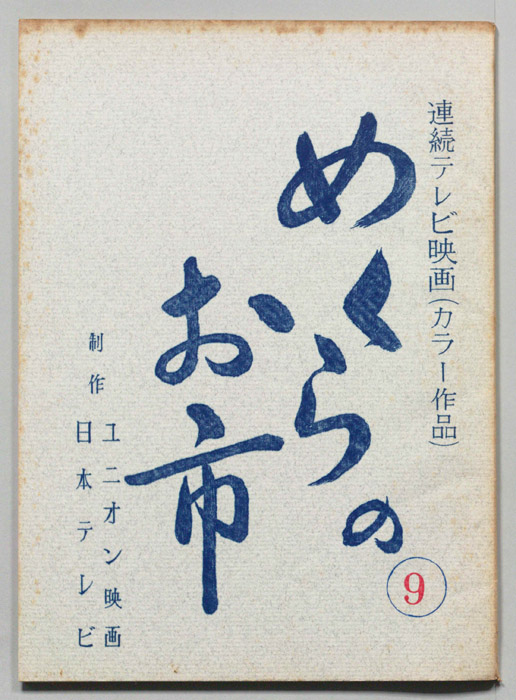 連続テレビ映画(カラー作品)
めくらの
お市
9
制作
ユニオン映画
日本テレビ